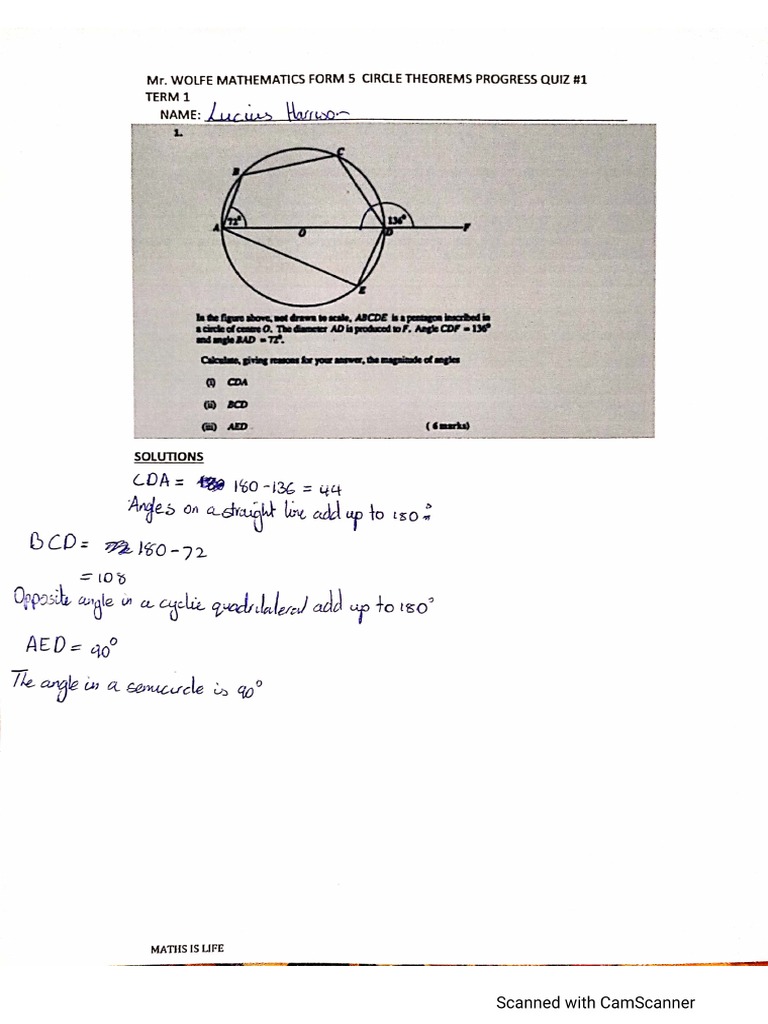 Mr. WOLFE MATHEMATICS FORM 5 CIRCLE THEOREMS PROGRESS QUIZ #1
TERM 1
NAME: Lucius Harrison
1.
C
B
72°
136°
A
O
D
F
E
In the figure above, not drawn to scale, ABCDE is a pentagon inscribed in
a circle of centre O. The diameter AD is produced to F. Angle CDF = 136°
and angle BAD = 72°.
Calculate, giving reasons for your answer, the magnitude of angles
(i) CDA
(ii) BCD
(iii) AED
( 6 marks)
SOLUTIONS
CDA = 180 - 136 = 44
Angles on a straight line add up to 180°
BCD = 180 - 72
= 108
Opposite angle in a cyclic quadrilateral add up to 180°
AED = 90°
The angle in a semicircle is 90°
MATHS IS LIFE
Scanned with CamScanner